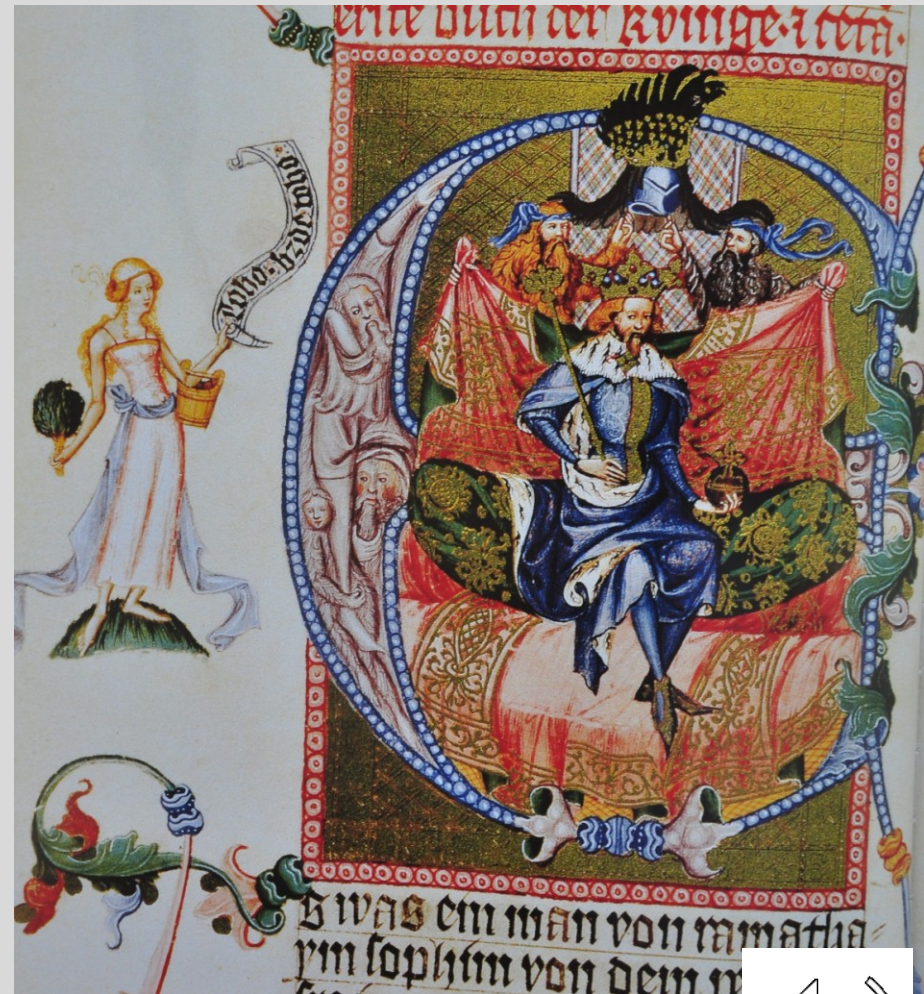 erste buch der kvnige
toho: bzde toho
s was ein man von ramatha=
ym sophim von dem